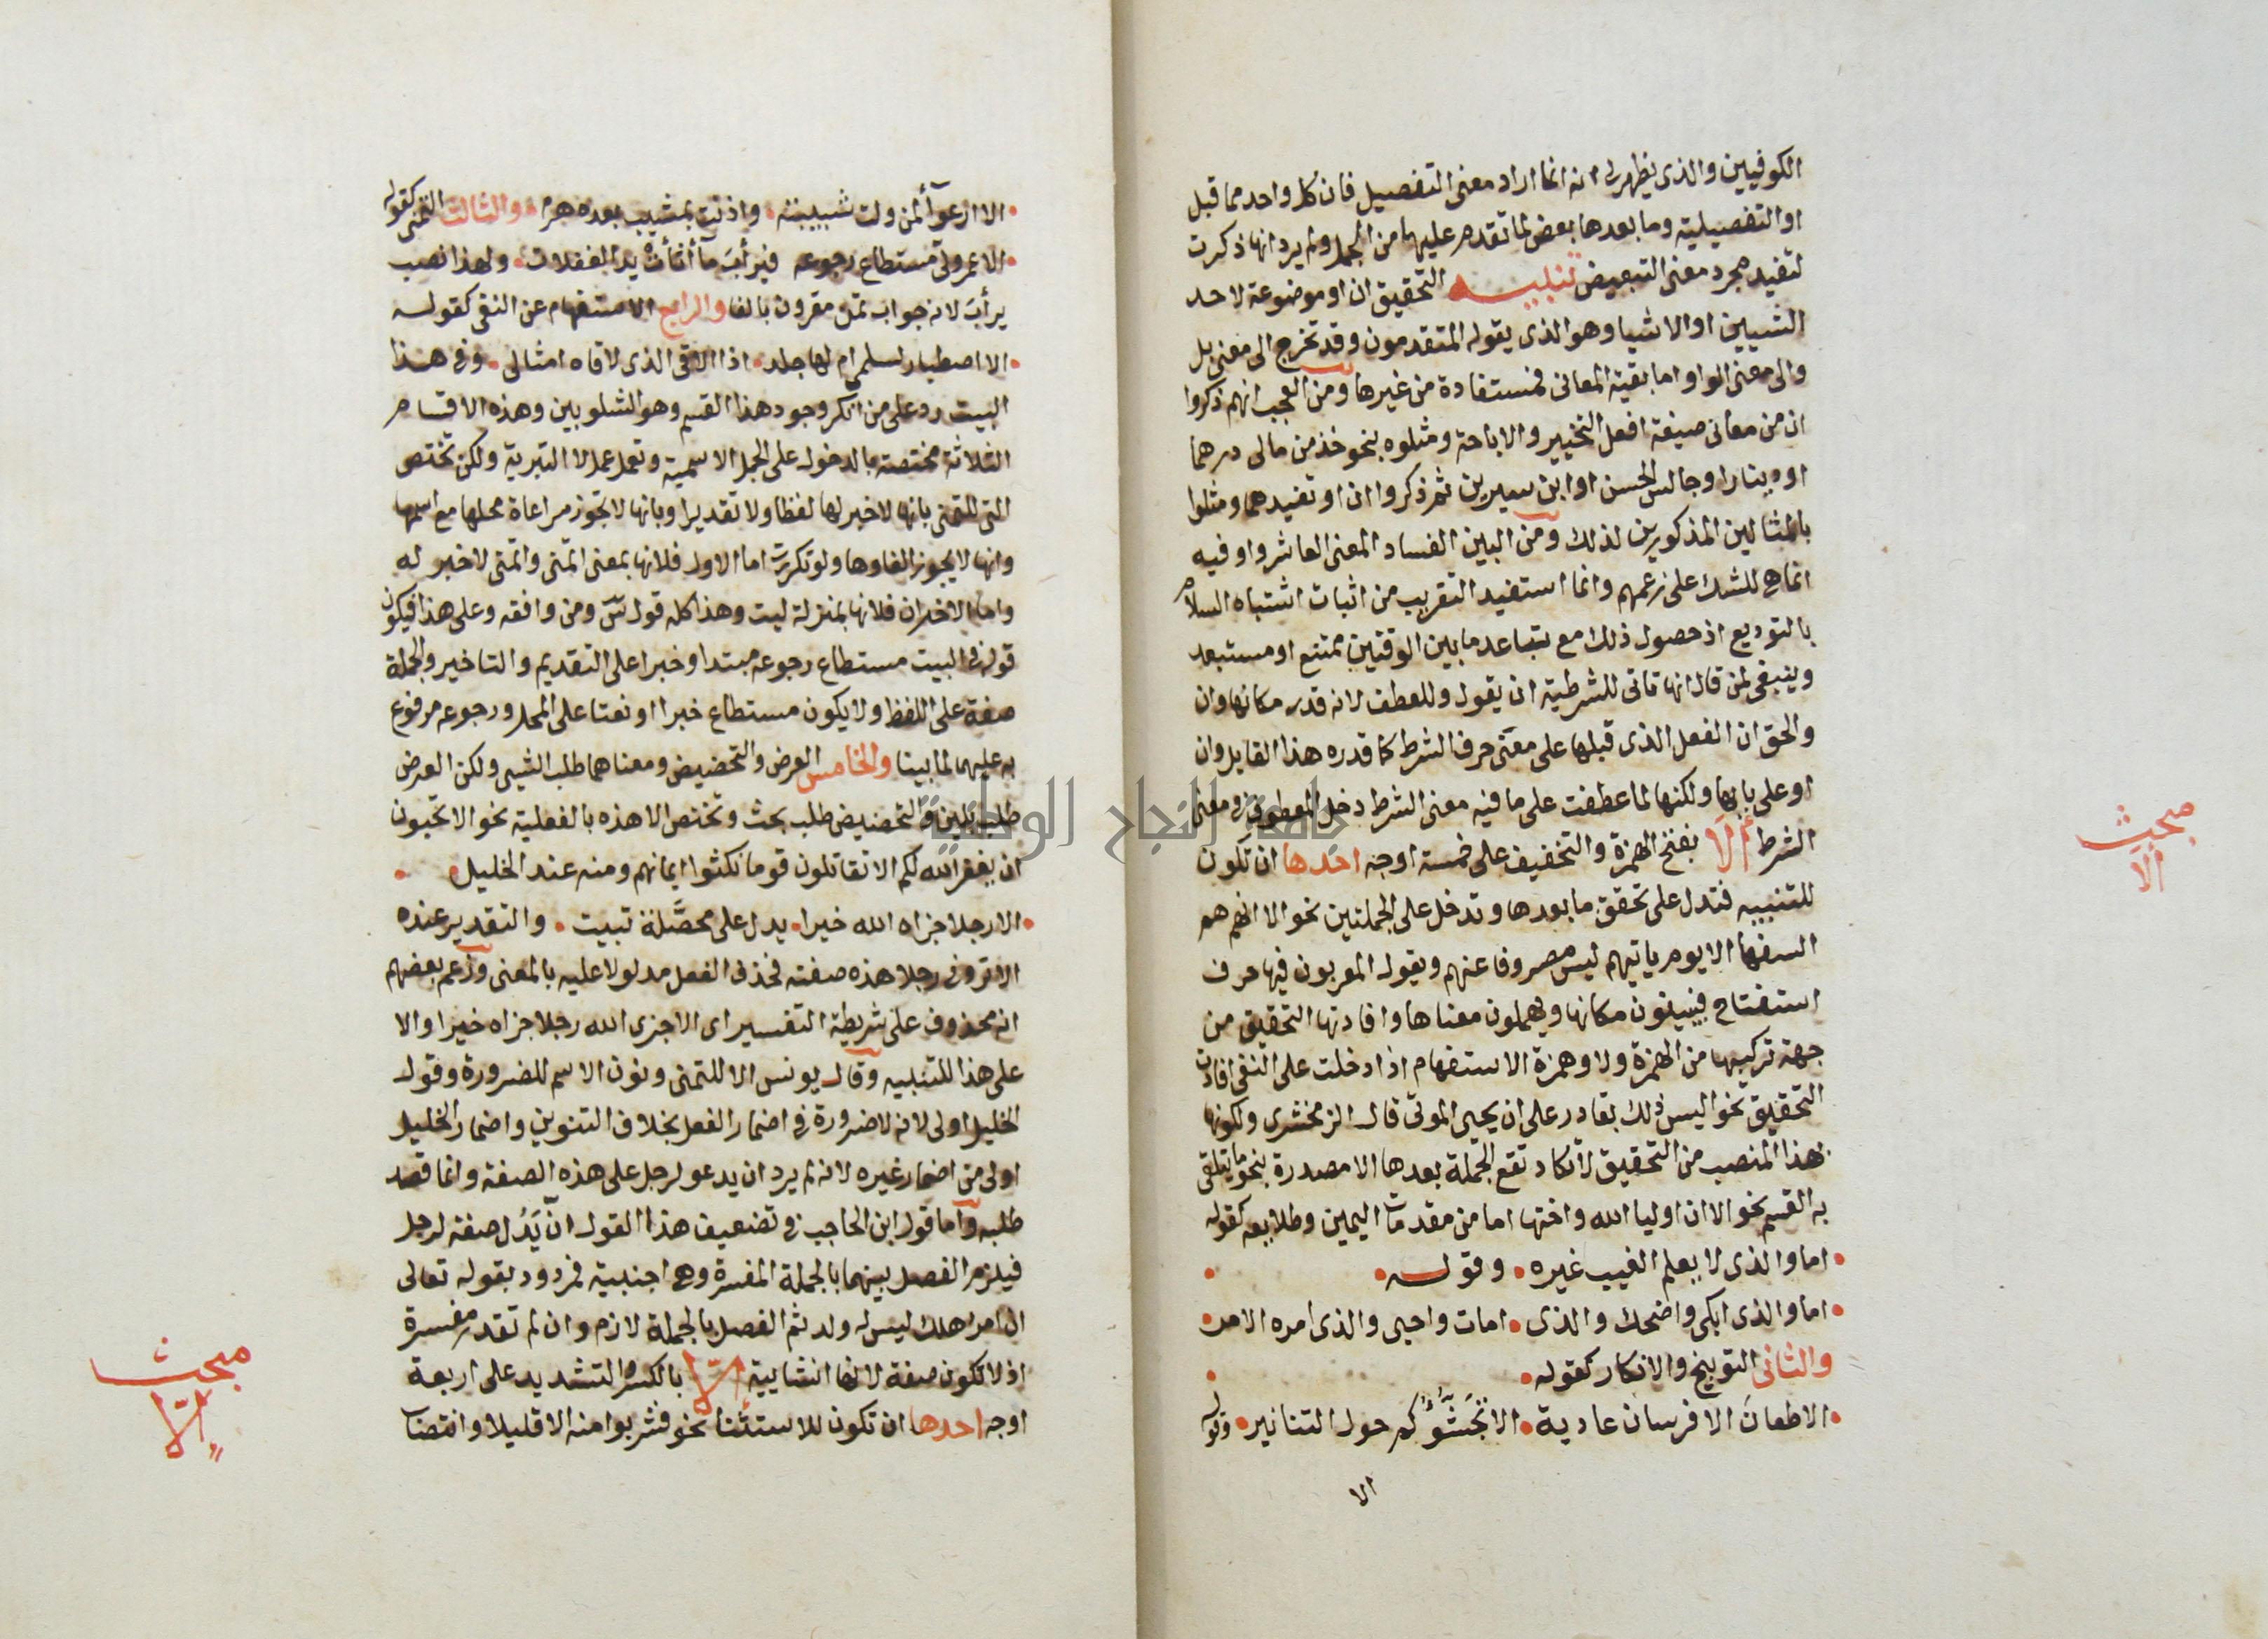 الكوفيين والذى يظهر لى انه انما اراد معنى التفصيل فان كل واحد مما قبل
او التفصيلية وما بعدها بعض لما تقدم عليهما من المجمل ولم يرد انها ذكرت
لتفيد مجرد معنى التبعيض تنبيه التحقيق ان او موضوعة لاحد
الشيين او الاشيا وهو الذى يقوله المتقدمون وقد تخرج الى معنى بل
والى معنى الواو واما بقية المعانى فمستفادة من غيرها ومن العجب انهم ذكروا
ان من معانى صيغة افعل التخيير والاباحة ومثلوه بنحو خذ من مالى درهما
او دينارا وجالس الحسن او ابن سيرين ثم ذكروا ان او تفيدهما ومثلوا
بالمثالين المذكورين لذلك ومن البين الفساد المعنى العاشر واو فيه
انما هى للشك على زعمهم وانما استفيد التقريب من اثبات اشتباه السلام
بالتوديع اذ حصول ذلك مع تباعد ما بين الوقتين ممتنع او مستبعد
وينبغى لمن قال انها تاتى للشرطية ان يقول وللعطف لانه قدر مكانها وان
والحق ان الفعل الذى قبلها على معنى حرف الشرط كما قدره هذا القايل وان
او على بابها ولكنها لما عطفت على ما فيه معنى الشرط دخل المعطوف فى معنى
الشرط أَلَا بفتح الهمزة والتخفيف على خمسة اوجه احدها ان تكون
للتنبيه فتدل على تحقق ما بعدها وتدخل على الجملتين نحو الا انهم هم
السفها الا يوم ياتيهم ليس مصروفا عنهم ويقول المعربون فيها حرف
استفتاح فيبينون مكانها ويهملون معناها وافادتها التحقيق من
جهة تركيبها من الهمزة ولا وهمزة الاستفهام اذا دخلت على النفى افادت
التحقيق نحو اليس ذلك بقادر على ان يحيى الموتى قال الزمخشرى ولكونها
بهذا المنصب من التحقيق لا تكاد تقع الجملة بعدها الا مصدرة بنحو ما يتلقى
به القسم نحو الا ان اوليا الله واختها اما من مقدمات اليمين وطلايعه كقوله
اما والذى لا يعلم الغيب غيره وقوله
اما والذى ابكى واضحك والذى امات واحيى والذى امره الامر
والثانى التوبيخ والانكار كقوله
الا طعانَ الا فرسان عادية الا تَجَشُّؤُكم حول التنانير وقوله
الا
مبحث
ألا
الا ارعوآ لمن ولت شبيبته واذنت بمشيب بعده هرم والثالث التمنى كقوله
الا عمر ولى مستطاع رجوعه فيرأبَ مآ أثأت يد الغفلات ولهذا نصب
يرأبَ لانه جواب تمن مقرون بالفا والرابع الاستفهام عن النفى كقوله
الا اصطبار لسلمى ام لها جلد اذا الاقى الذى لاقاه امثالى وفى هذا
البيت رد على من انكر وجود هذا القسم وهو الشلوبين وهذه الاقسام
الثلاثة مختصة بالدخول على الجمل الاسمية وتعمل عمل لا التبرية ولكن تختص
التى للتمنى بانها لا خبر لها لفظا ولا تقديرا وبانها لا يجوز مراعاة محلها مع اسمها
وانها لا يجوز الغاوها ولو تكررت اما الاول فلانها بمعنى اتمنى واتمنى لا خبر له
واما الاخران فلانها بمنزلة ليت وهذا كله قول س ومن وافقه وعلى هذا فيكون
قوله فى البيت مستطاع رجوعه مبتدا وخبرا على التقديم والتاخير والجملة
صفة على اللفظ ولا يكون مستطاع خبرا او نعتا على المحل ورجوعه مرفوع
به عليهما لما بينا والخامس العرض والتحضيض ومعناهما طلب الشيى ولكن العرض
طلب بلين والتحضيض طلب بحث وتختص الا هذه بالفعلية نحو الا تحبون
ان يغفر الله لكم الا تقاتلون قوما نكثوا ايمانهم ومنه عند الخليل
الا رجلا جزاه الله خيرا يدل على محصَّلة تبيت والتقدير عنده
الا ترونى رجلا هذه صفته فحذف الفعل مدلولا عليه بالمعنى وزعم بعضهم
انه محذوف على شريطة التفسير اى الا جزى الله رجلا جزاه خيرا والا
على هذا للتنبيه وقال يونس الا للتمنى ونون الاسم للضرورة وقول
الخليل اولى لانه لا ضرورة فى اضمار الفعل بخلاف التنوين واضمار الخليل
اولى من اضمار غيره لانه لم يرد ان يدعو لرجل على هذه الصفة وانما قصد
طلبه واما قول ابن الحاجب فى تضعيف هذا القول انّ يَدُل صفة لرجل
فيلزم الفصل بينهما بالجملة المفسرة وهى اجنبية فمردود بقوله تعالى
ان امرؤ هلك ليس له ولد ثم الفصل بالجملة لازم وان لم تقدر مفسرة
اذ لا تكون صفة لانها انشايية إلّا بالكسر والتشديد على اربعة
اوجه احدها ان تكون للاستثنا نحو فشربوا منه الا قليلا وانتصاب
مبحث
إلّا
جامعة النجاح الوطنية